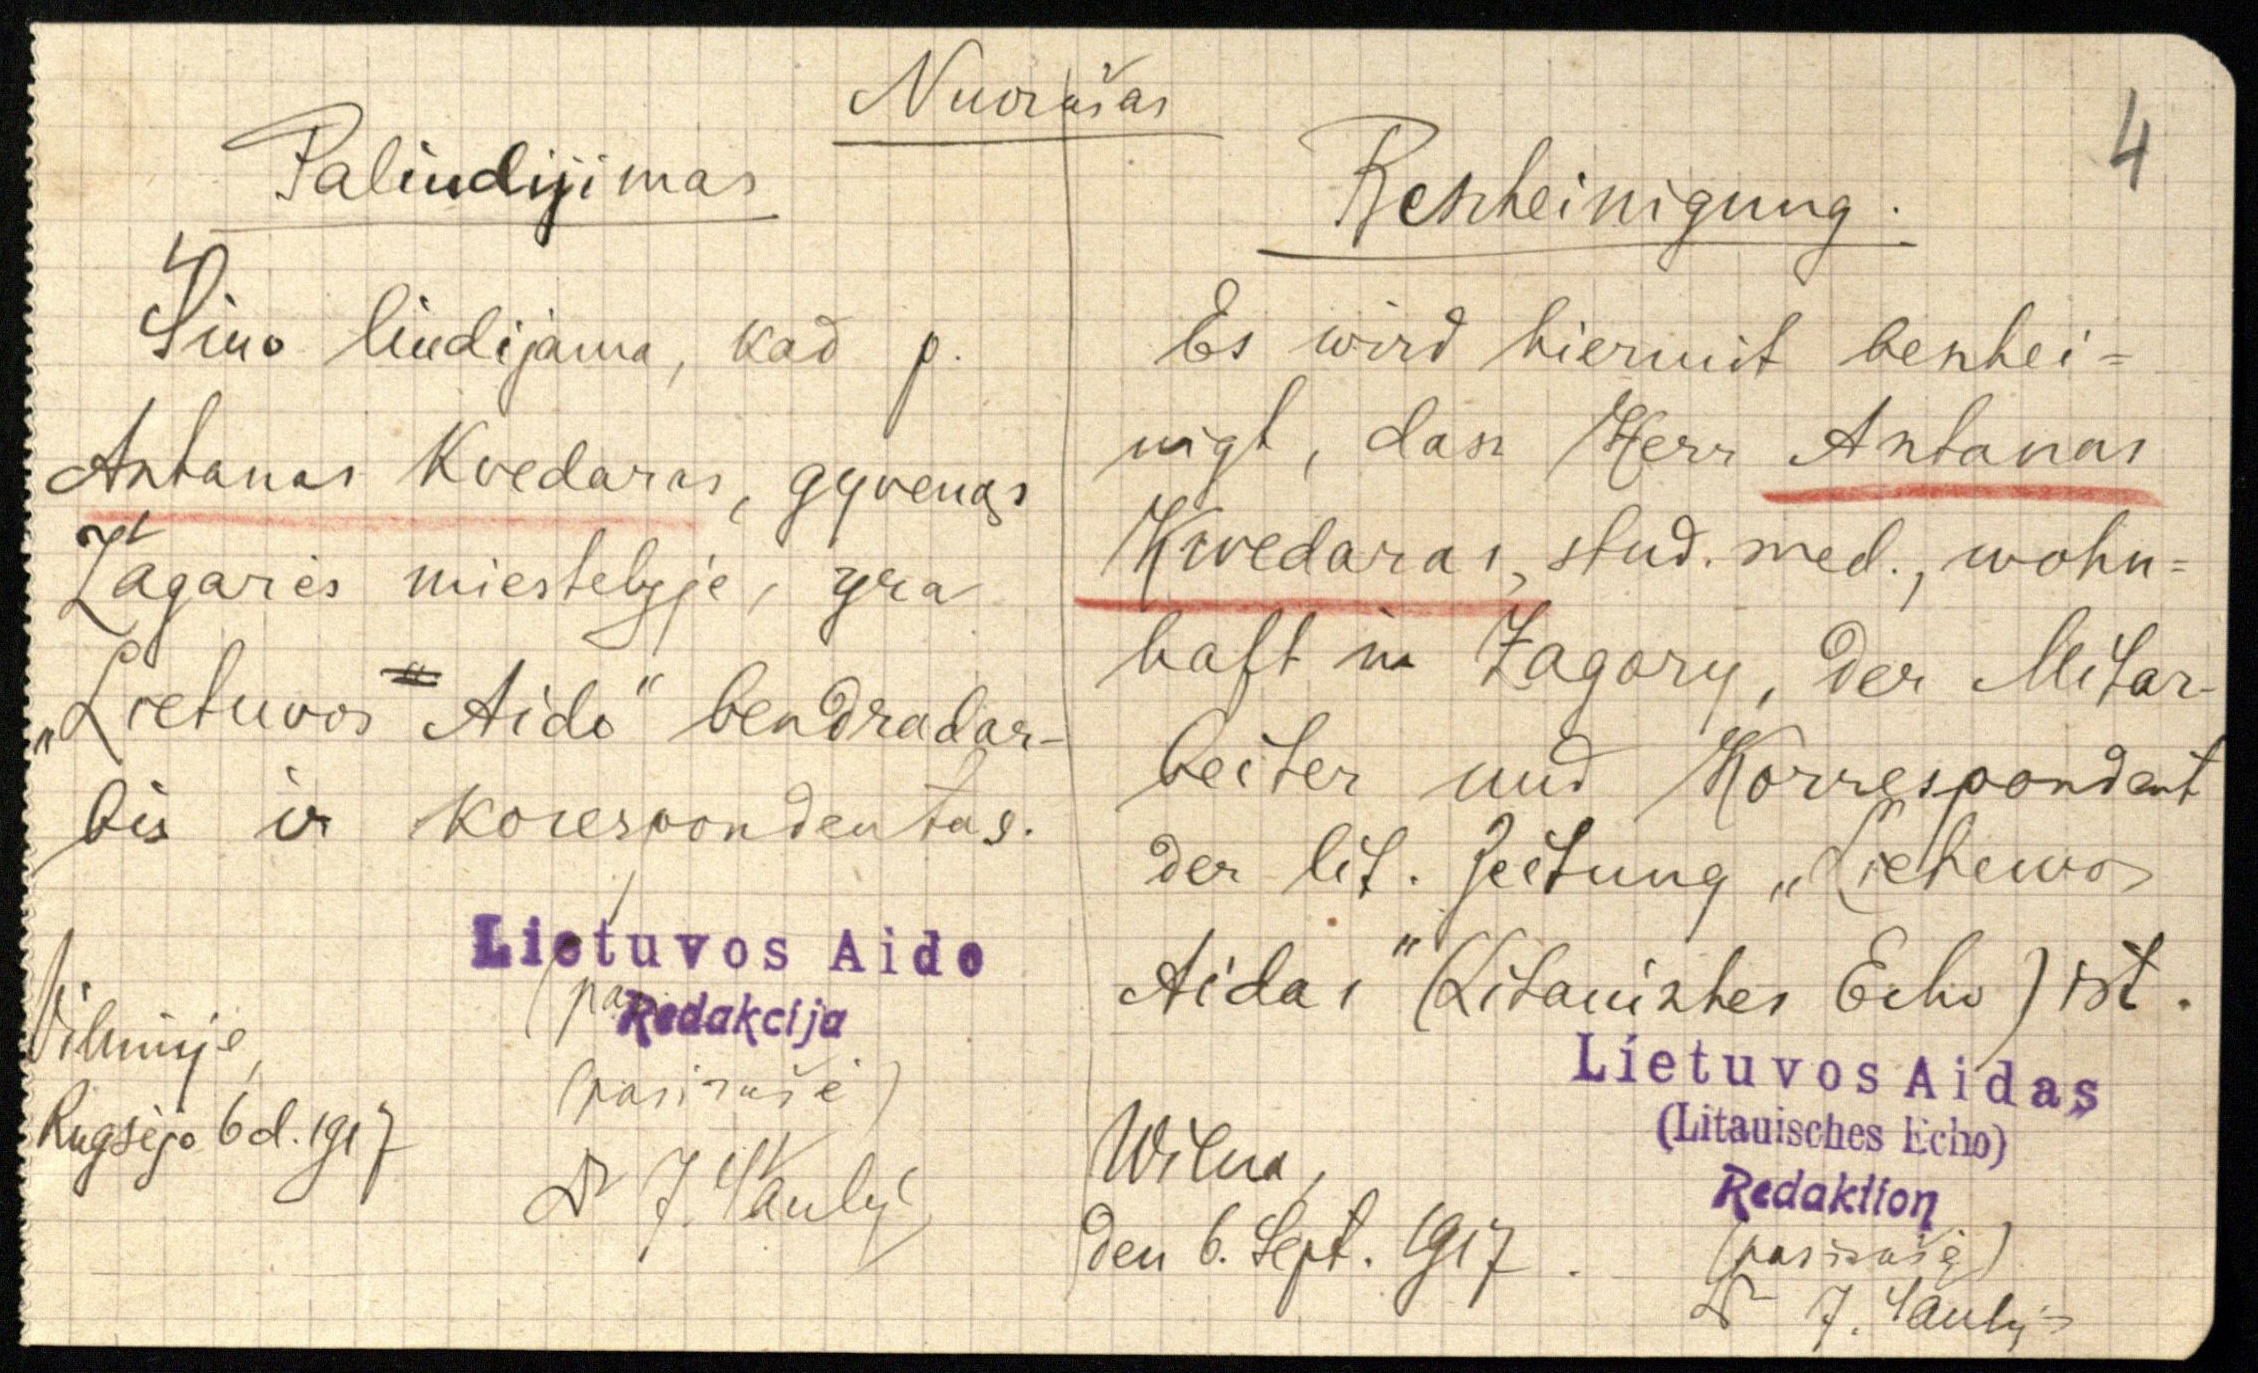 Nuorašas
4
Paliudijimas
Šiuo liudijama, kad p.
Antanas Kvedaras, gyvenąs
Žagarės miestelyje, yra
„Lietuvos Aido“ bendradar-
bis ir korespondentas.
Lietuvos Aido
Redakcija
Vilniuje,
Rugsėjo 6 d. 1917
(pasirašė)
Dr J. Šaulys
Bescheinigung.
Es wird hiermit beschei=
nigt, dass Herr Antanas
Kwedaras, stud. med., wohn=
haft in Žagory, der Mitar-
beiter und Korrespondent
der lit. Zeitung „Lietuwos
Aidas“ (Litauisches Echo) ist.
Lietuvos Aidas
(Litauisches Echo)
Redaktion
Wilna,
den 6. Sept. 1917.
(pasirašė)
Dr J. Šaulys